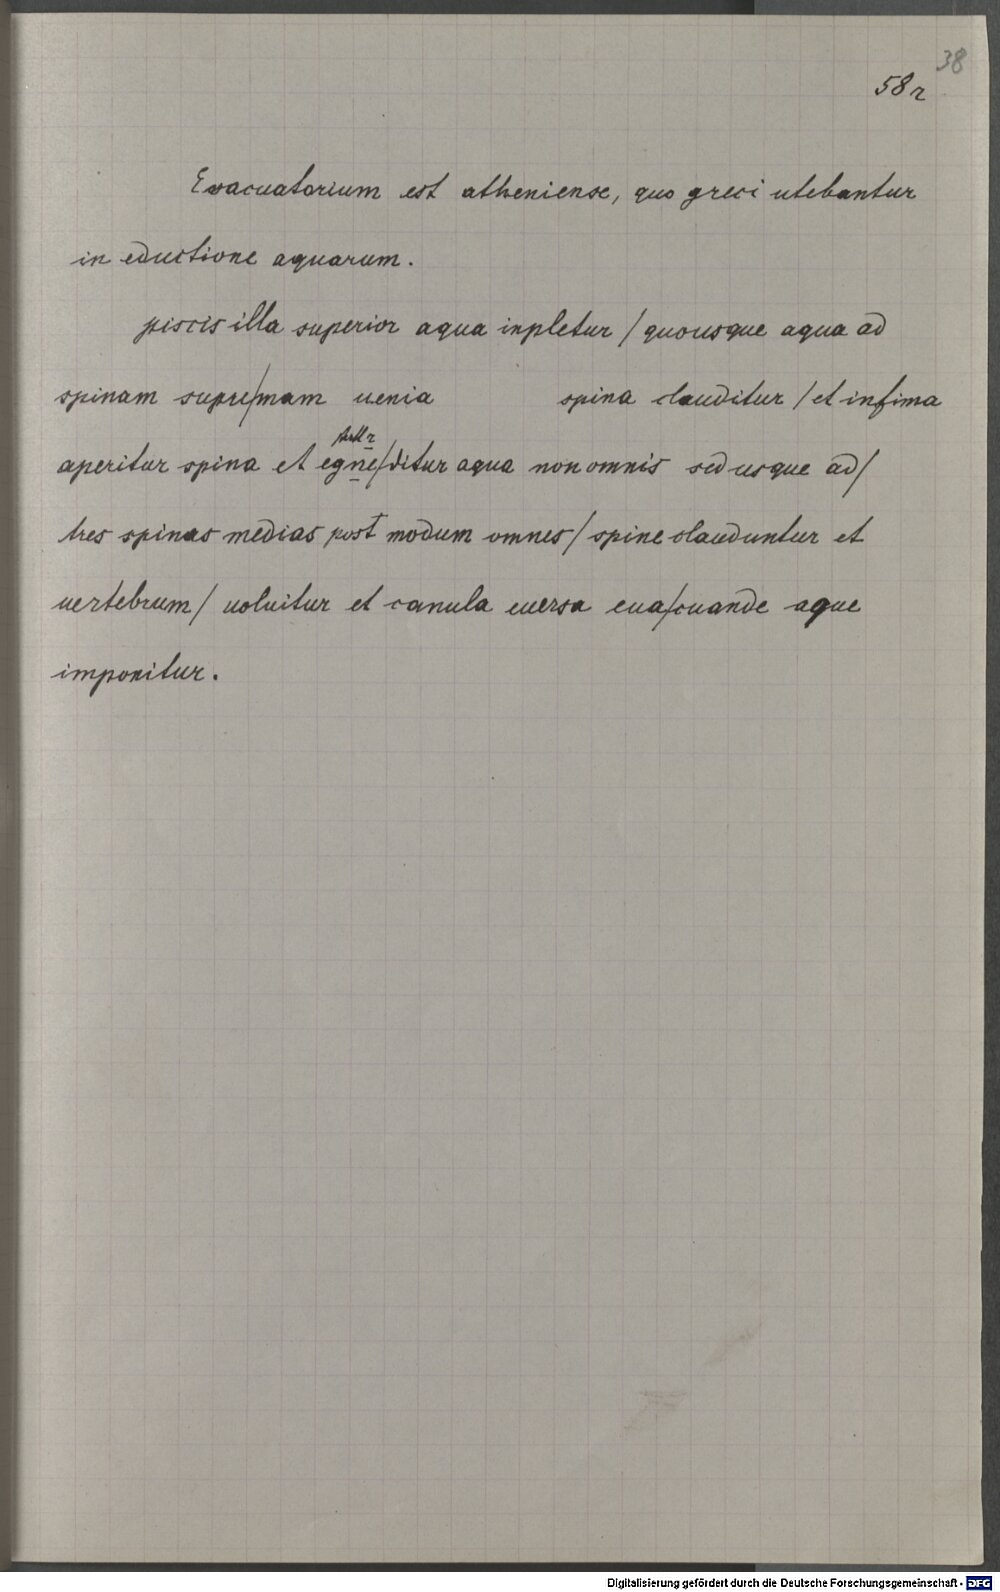 38
58r
Evacuatorium est atheniense, quo greci utebantur
in eductione aquarum.
piscis illa superior aqua inpletur / quousque aqua ad
spinam supre/mam uenia spina clauditur / et infima
aperitur spina et egne/ditur aqua non omnis sed usque ad/
tres spinas medias post modum omnes / spine clauduntur et
uertebrum / uoluitur et canula euersa eua/cuande aque
imponitur.
Digitalisierung gefördert durch die Deutsche Forschungsgemeinschaft - DFG